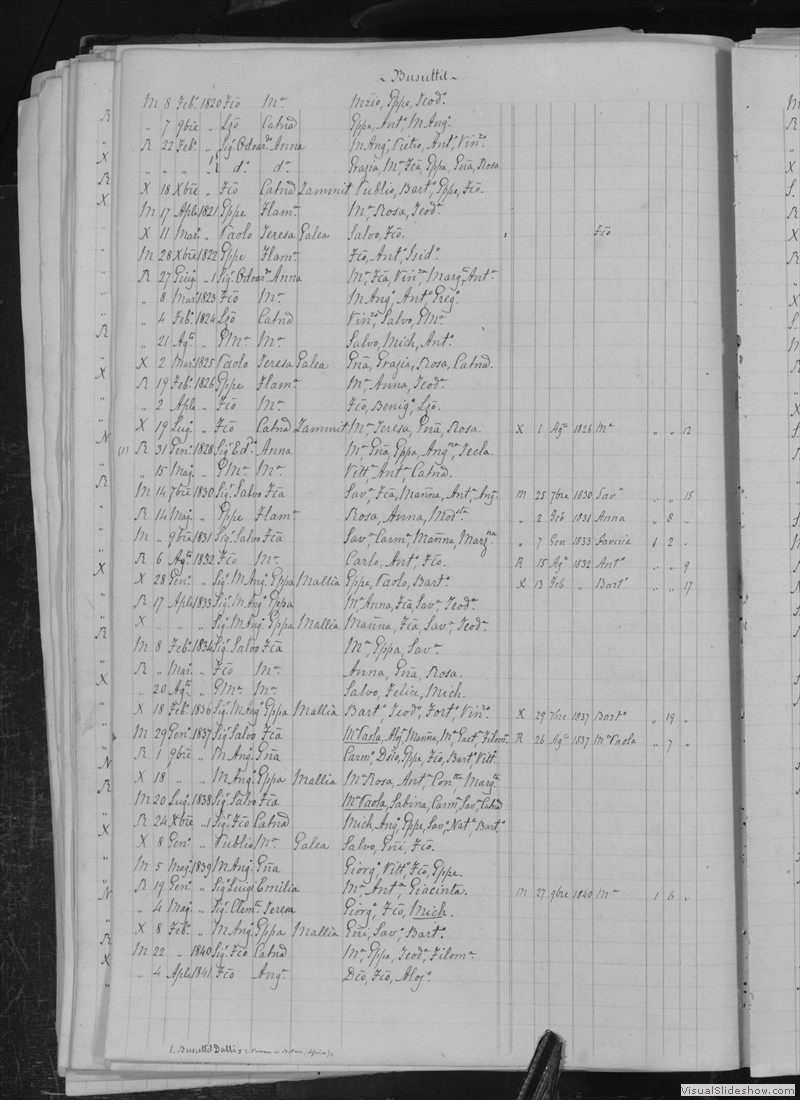 ~ Busuttil ~
M 8 Feb.º 1820 Fcō M.ª Mzio, Gppe, Teod.ª
„ 7 9bre „ Lzō Catnā Gppe, Ant.º, M Ang.º
R 22 Feb.º „ Sig.r Odoar.do Anna M Ang.º, Pietro, Ant.º, Vin.zo
„ „ „ „ R d.º d.ª Grazia, M.ª, Fcā, Gppa, Gnā, Rosa
X 18 Xbre „ Fcō Catnā Zammit Publio, Bart.º, Gppe, Fcō.
M 17 Aple 1821 Gppe Flam.ª M.ª Rosa, Teod.ª
X 11 Mar.º „ Paolo Teresa Galea Salvo, Fcō. Fcō
M 28 Xbre 1822 Gppe Flam.ª Fcō, Ant.º, Isid.º
R 27 Giug. „ Sig.r Odoar.do Anna M.ª, Fcā, Vin.za, Marg.ª, Ant.ª
„ 8 Mar.º 1823 Fcō M.ª M Ang.º, Ant.º, Greg.º
„ 4 Feb.º 1824 Lzō Catnā Vin.zo, Salvo, GM.ª
„ 21 Ag.to „ GM.ª M.ª Salvo, Mich., Ant.º
X 2 Mar.º 1825 Paolo Teresa Galea Gnā, Grazia, Rosa, Catnā.
R 19 Feb.º 1826 Gppe Flam.ª M.ª Anna, Teod.ª
„ 2 Aple „ Fcō M.ª Fcō, Benig.º, Lzō.
X 19 Lug. „ Fcō Catnā Zammit M.ª Teresa, Gnā, Rosa. X 1 Ag.to 1826 M.ª „ „ 12
(1) R 31 Gen.º 1828 Sig.r Ed.º Anna M.ª Gnā, Gppa, Ang.ca, Tecla.
„ 15 Mag. „ GM.ª M.ª Vitt.ª, Ant.ª, Catnā.
M 14 7bre 1830 Sig.r Salvo Fcā Sav.ª, Fcā, Mannā, Ant.ª, Ang.ª M 25 7bre 1830 Sav.ª „ „ 15
R 14 Mag. „ Gppe Flam.ª Rosa, Anna, Mod.sta „ 2 Feb 1831 Anna „ 8 „
M „ 9bre 1831 Sig.r Salvo Fcā Sav.ª Carm.ª, Mannā, Marg.ª „ 7 Gen 1833 Saveria 1 2 „
R 6 Ag.to 1832 Fcō M.ª Carlo, Ant.º, Fcō. R 15 Ag.to 1832 Ant.º „ „ 9
X 28 Gen.º „ Sig.r M Ang.º Gppa Mallia Gppe, Paolo, Bart.º X 13 Feb „ Bart.º „ „ 17
R 17 Aple 1833 Sig.r M Ang.º Gppa M.ª Anna, Fcā, Sav.ª, Teod.ª
X „ „ Sig.r M Ang.º Gppa Mallia Mannā, Fcā, Sav.ª, Teod.ª
M 8 Feb.º 1834 Sig.r Salvo Fcā M.ª, Gppa, Sav.ª
R „ Mag. „ Fcō M.ª Anna, Gnā, Rosa.
„ 20 Ag.to „ GM.ª M.ª Salvo, Felice, Mich.
X 18 Feb.º 1836 Sig.r M Ang.º Gppa Mallia Bart.º, Teod.º, Fort.º, Vin.zo X 29 7bre 1837 Bart.º „ 19 „
M 29 Gen.º 1837 Sig.r Salvo Fcā M.ª Paola, Aloj.ª Mannā, M.ª Gaet.ª, Filom.ª R 26 Ag.to 1837 M.ª Paola „ 7 „
R 1 9bre „ M Ang.º Gnā Carm.º, Gppe, Fcō, Bart.º, Vitt.º
X 18 „ „ M Ang.º Gppa Mallia M.ª Rosa, Ant.ª, Con.tta, Marg.ta
M 20 Lug. 1838 Sig.r Salvo Fcā M.ª Paola, Sabina, Carm.ª, Sav.ª, Catnā
R 24 Xbre „ Sig.r Fcō Catnā Mich. Ang.º, Gppe, Sav.º, Nat.e, Bart.º
X 8 Gen.º „ Publio M.ª Galea Salvo, Gnī, Fcō.
M 5 Mag. 1839 M Ang.º Gnā Giorg.º, Vitt.º, Fcō, Gppe.
R 19 Gen.º „ Sig.r Luigi Emilia M.ª Ant.ª, Giacinta. M 27 9bre 1840 M.ª 1 6 „
„ 4 Mag. „ Sig.r Clem.te Teresa Giorg.º, Fcō, Mich.
X 8 Feb.º „ M Ang.º Gppa Mallia Gnī, Sav.º, Bart.º
M 22 „ 1840 Sig.r Fcō Catnā M.ª, Gppa, Teod.ª, Filom.ª
„ 4 Aple 1841 Fcō Ang.ª Dcō, Fcō, Aloj.º
1. Busuttil Dalli
VisualSlideshow.com